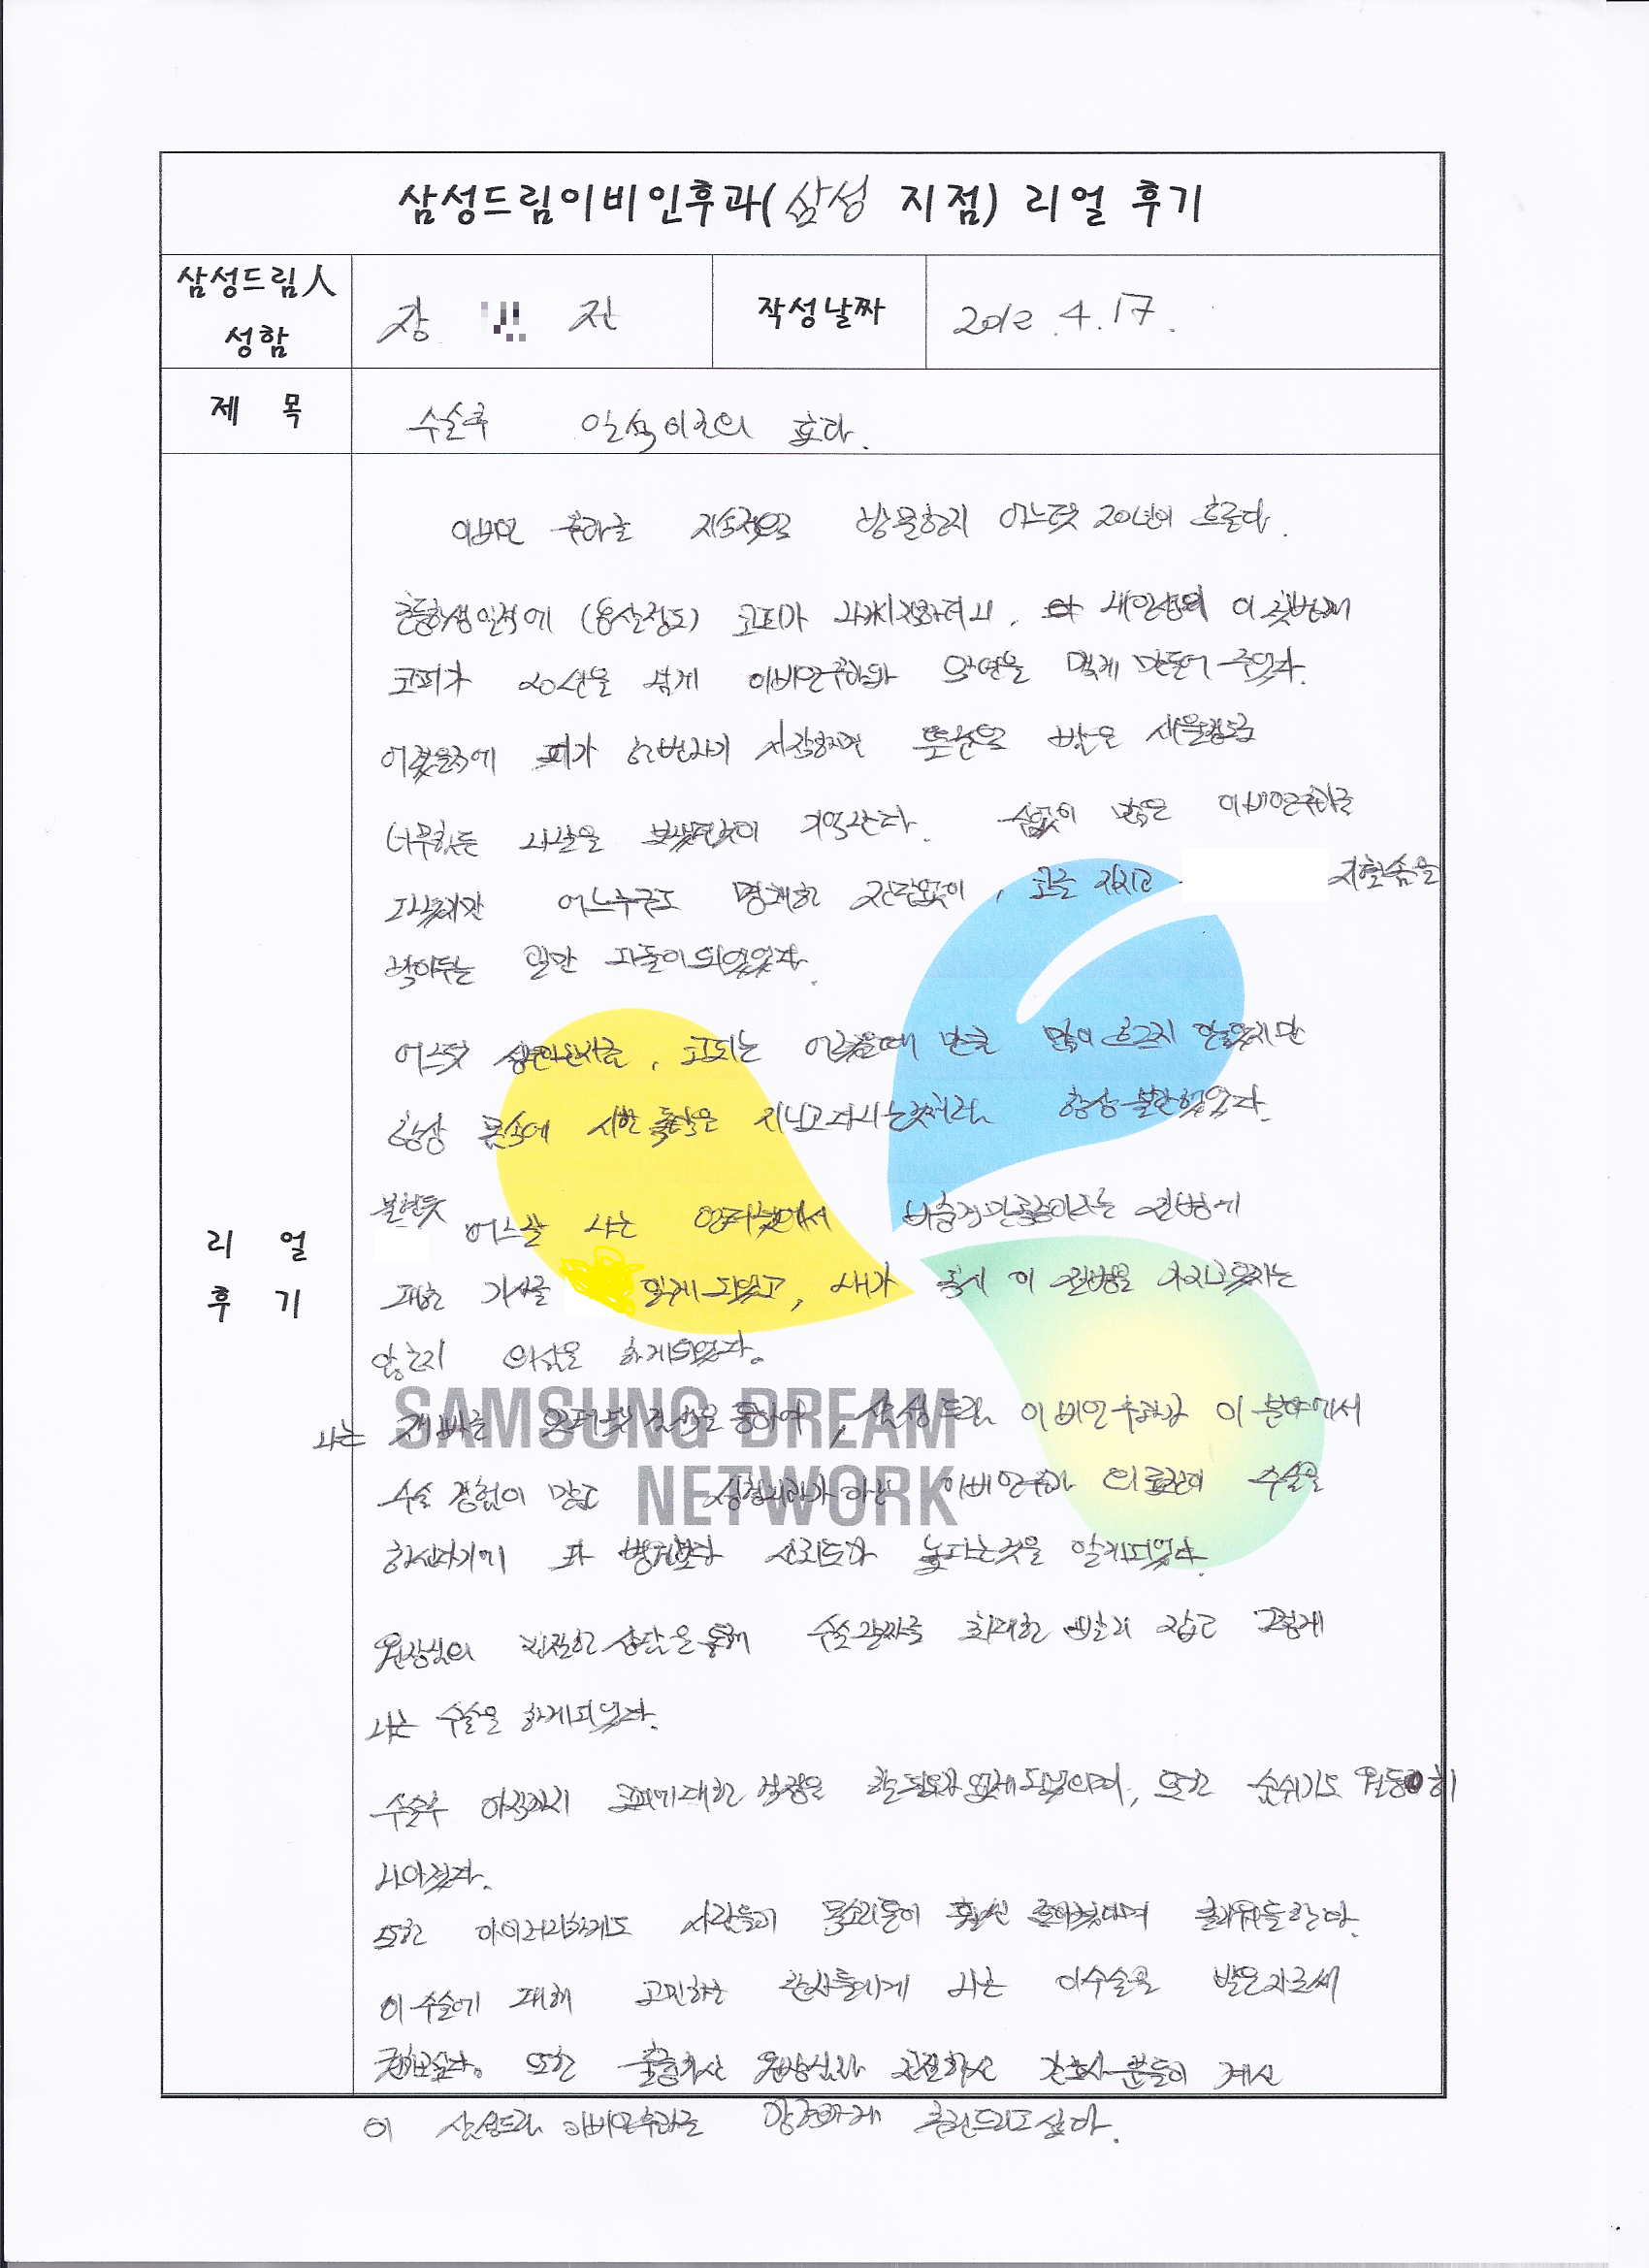 삼성드림이비인후과(삼성 지점) 리얼 후기
삼성드림人
성함
장 진
작성날짜
2012.4.17.
제 목
수술후 일석이조의 효과.
리 얼
후 기
이비인 후과를 지속적으로 방문한지 어느덧 20년이 흐른다.
초등학생인적에 (응살정도) 코피가 나기시작하더니, 내인생의 이 첫번째
코피가 20년을 넘게 이비인후과와 악연을 맺게 만들어 주었다.
어렸을적에 피가 한번나기 시작하면 뜬눈으로 밤을 새울정도로
너무힘든 나날을 보냈던것이 기억난다. 수없이 많은 이비인후과를
다녔지만 어느누구도 명쾌한 진단없이, 코를 지지고 지혈솜을
박아두는 일만 되었었다.
어느덧 코피는 어렸을때 만큼 많이 흐르지 않았지만
항상 몸속에 시한폭탄을 지니고다니는것처럼 항상 불안했었다.
불현듯 어느날 나는 인터넷에서 비중격만곡증이라는 질병에
대한 기사를 읽게되었고, 내가 혹시 이 질병을 가지고있지는
않는지 의심을 하게되었다.
나는 인터넷 검색을 통하여, 삼성드림 이비인후과가 이 분야에서
수술 경험이 많고 이비인후과 의료진이 수술을
하신다기에 타 병원보다 신뢰도가 높다는것을 알게되었다.
원장님의 친절한 상담을통해 수술날짜를 최대한 빨리 잡고 그렇게
나는 수술을 하게되었다.
수술후 아직까지 코피에대한 걱정을 할필요가 없게되었으며, 또한 숨쉬기도 원활히
나아졌다.
또한 아이러니하게도 사람들이 목소리톤이 훨씬 좋아졌다며 들한다.
이 수술에 대해 고민하는 환자들에게 나는 이수술을 받은자로써
권해본다. 또한 출중하신 원장님과 친절하신 간호사분들이 계신
이 삼성드림 이비인후과를 강력하게 추천드리고싶다.
SAMSUNG DREAM
NETWORK